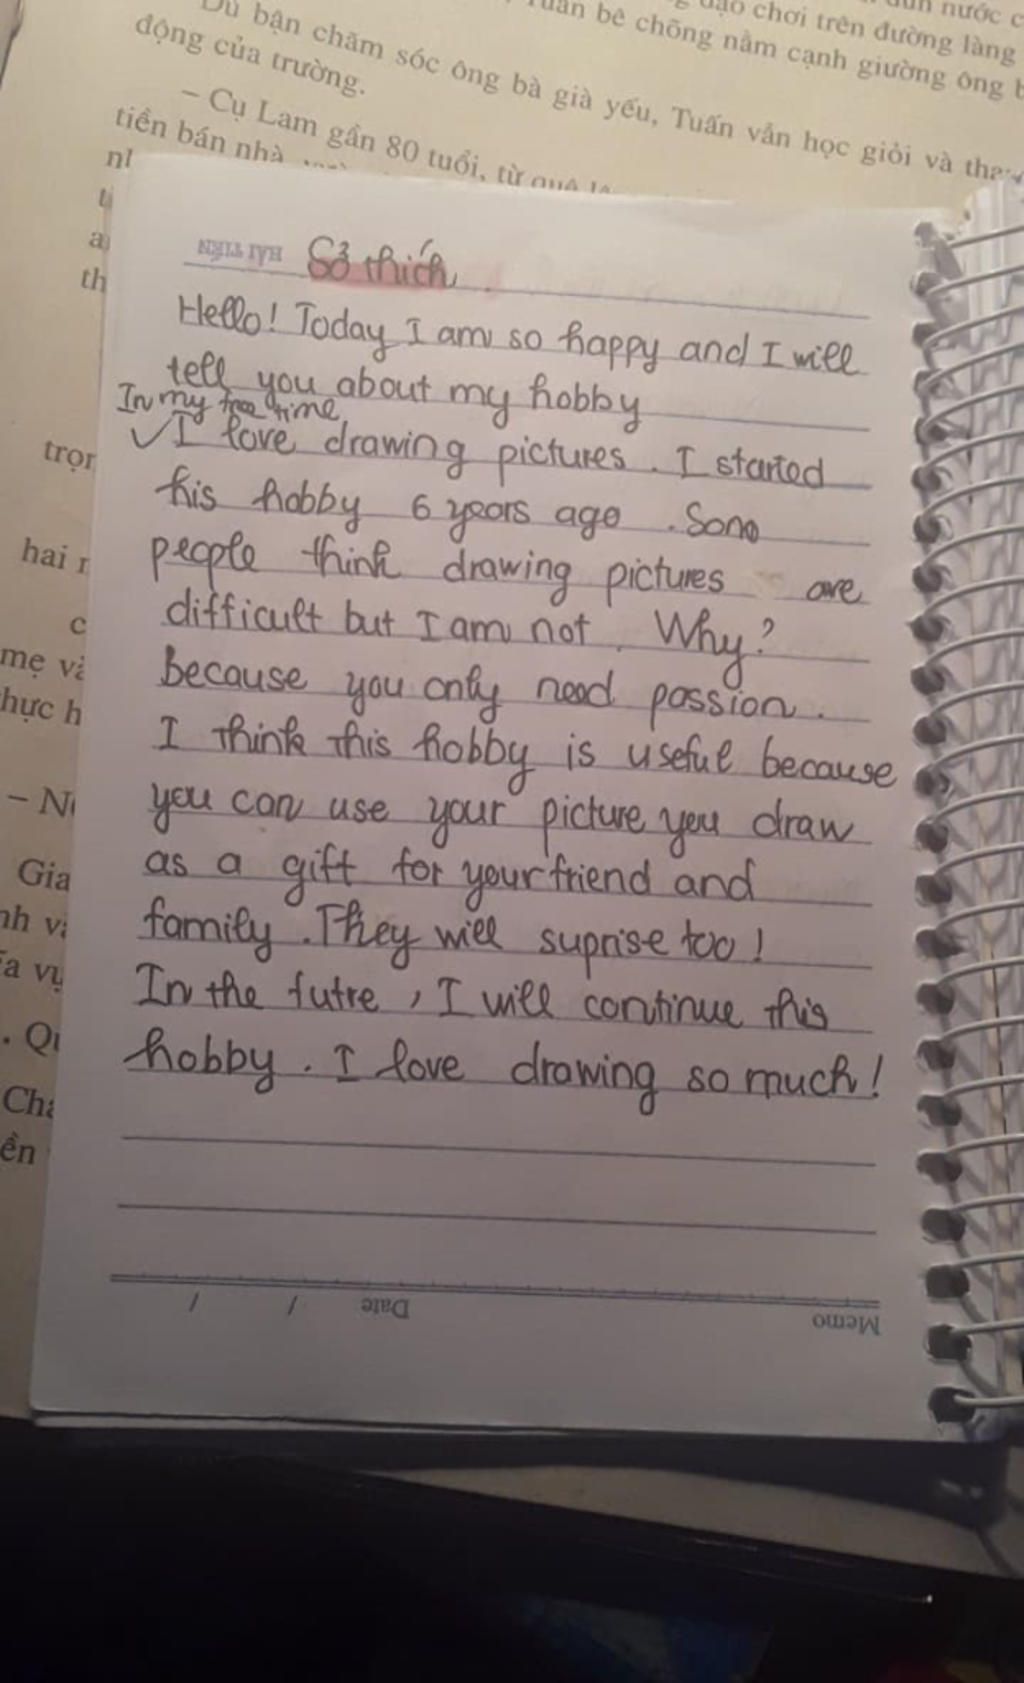 Dù bận chăm sóc ông bà già yếu, Tuấn vẫn học giỏi và
động của trường.
đạo chơi trên đường làng
bê chõng nằm cạnh giường ông
– Cụ Lam gần 80 tuổi, từ quê
tiền bán nhà
HẢI TIẾN
Sở thích
Hello! Today I am so happy and I will
tell you about my hobby
In my free time
✓I love drawing pictures. I started
his hobby 6 years ago. Some
people think drawing pictures are
difficult but I am not. Why?
Because you only need passion.
I think this hobby is useful because
you can use your picture you draw
as a gift for your friend and
family. They will suprise too!
In the futre, I will continue this
hobby. I love drawing so much!
trọn
hai
mẹ và
– N
Gia
. Qu
Memo
Date / /